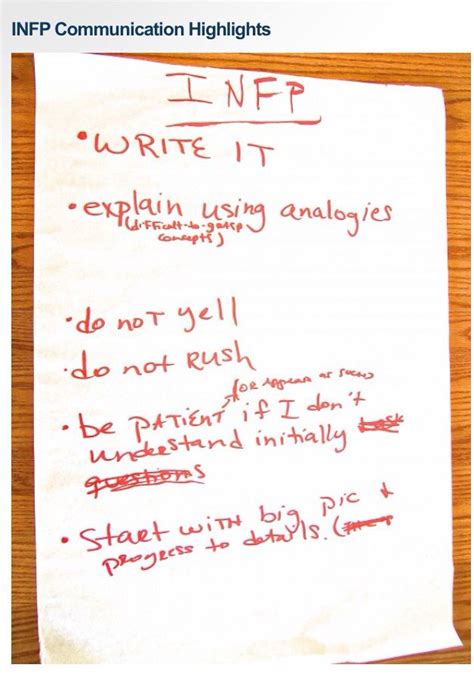 INFP Communication Highlights
INFP
• WRITE IT
• explain using analogies
(difficult-to-gasp
concepts)
• do noT yell
• do not RUSH
(OR Appear as such)
• be PATIENT if I don't
understand initially
questions
• Start WITH big pic &
progress to details. (